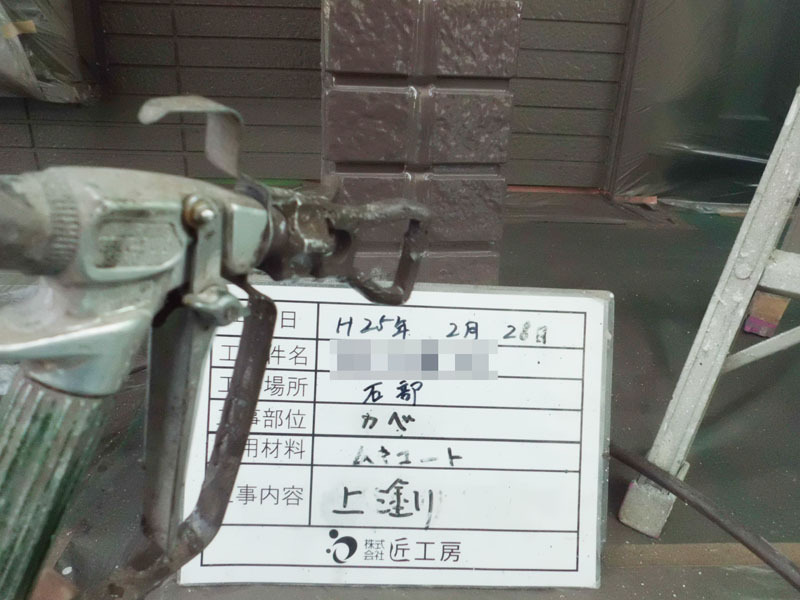 日 H25年 2月 28日
工 件名
工 場所 石部
事部位 カベ
用材料 ムキコート
工事内容 上塗り
株式会社 匠工房